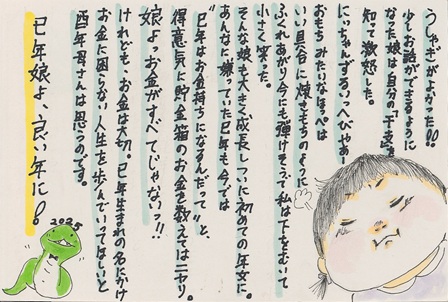 うしゃぎがよかった!!
少しお話ができるように
なった娘は自分の"干支"を
知って激怒した。
にっちゃんずるいっへびやあー
おもちみたいなほっぺは
いい具合に焼きもちのように
ふくれあがり今にも弾けそうで私は下をむいて
小さく笑った。
そんな娘も大きく成長しついに初めての年女に。
あんなに嫌っていた巳年も今では
"巳年はお金持ちになるんだって"と、
得意気に貯金箱のお金を数えてはニヤリ。
娘よっお金がすべてじゃないっ!!
けれども、お金は大切。巳年生まれの名にかけ
お金に困らない人生を歩んでいってほしいと
酉年母さんは思うのです。
巳年娘よ、良い年に!
2025